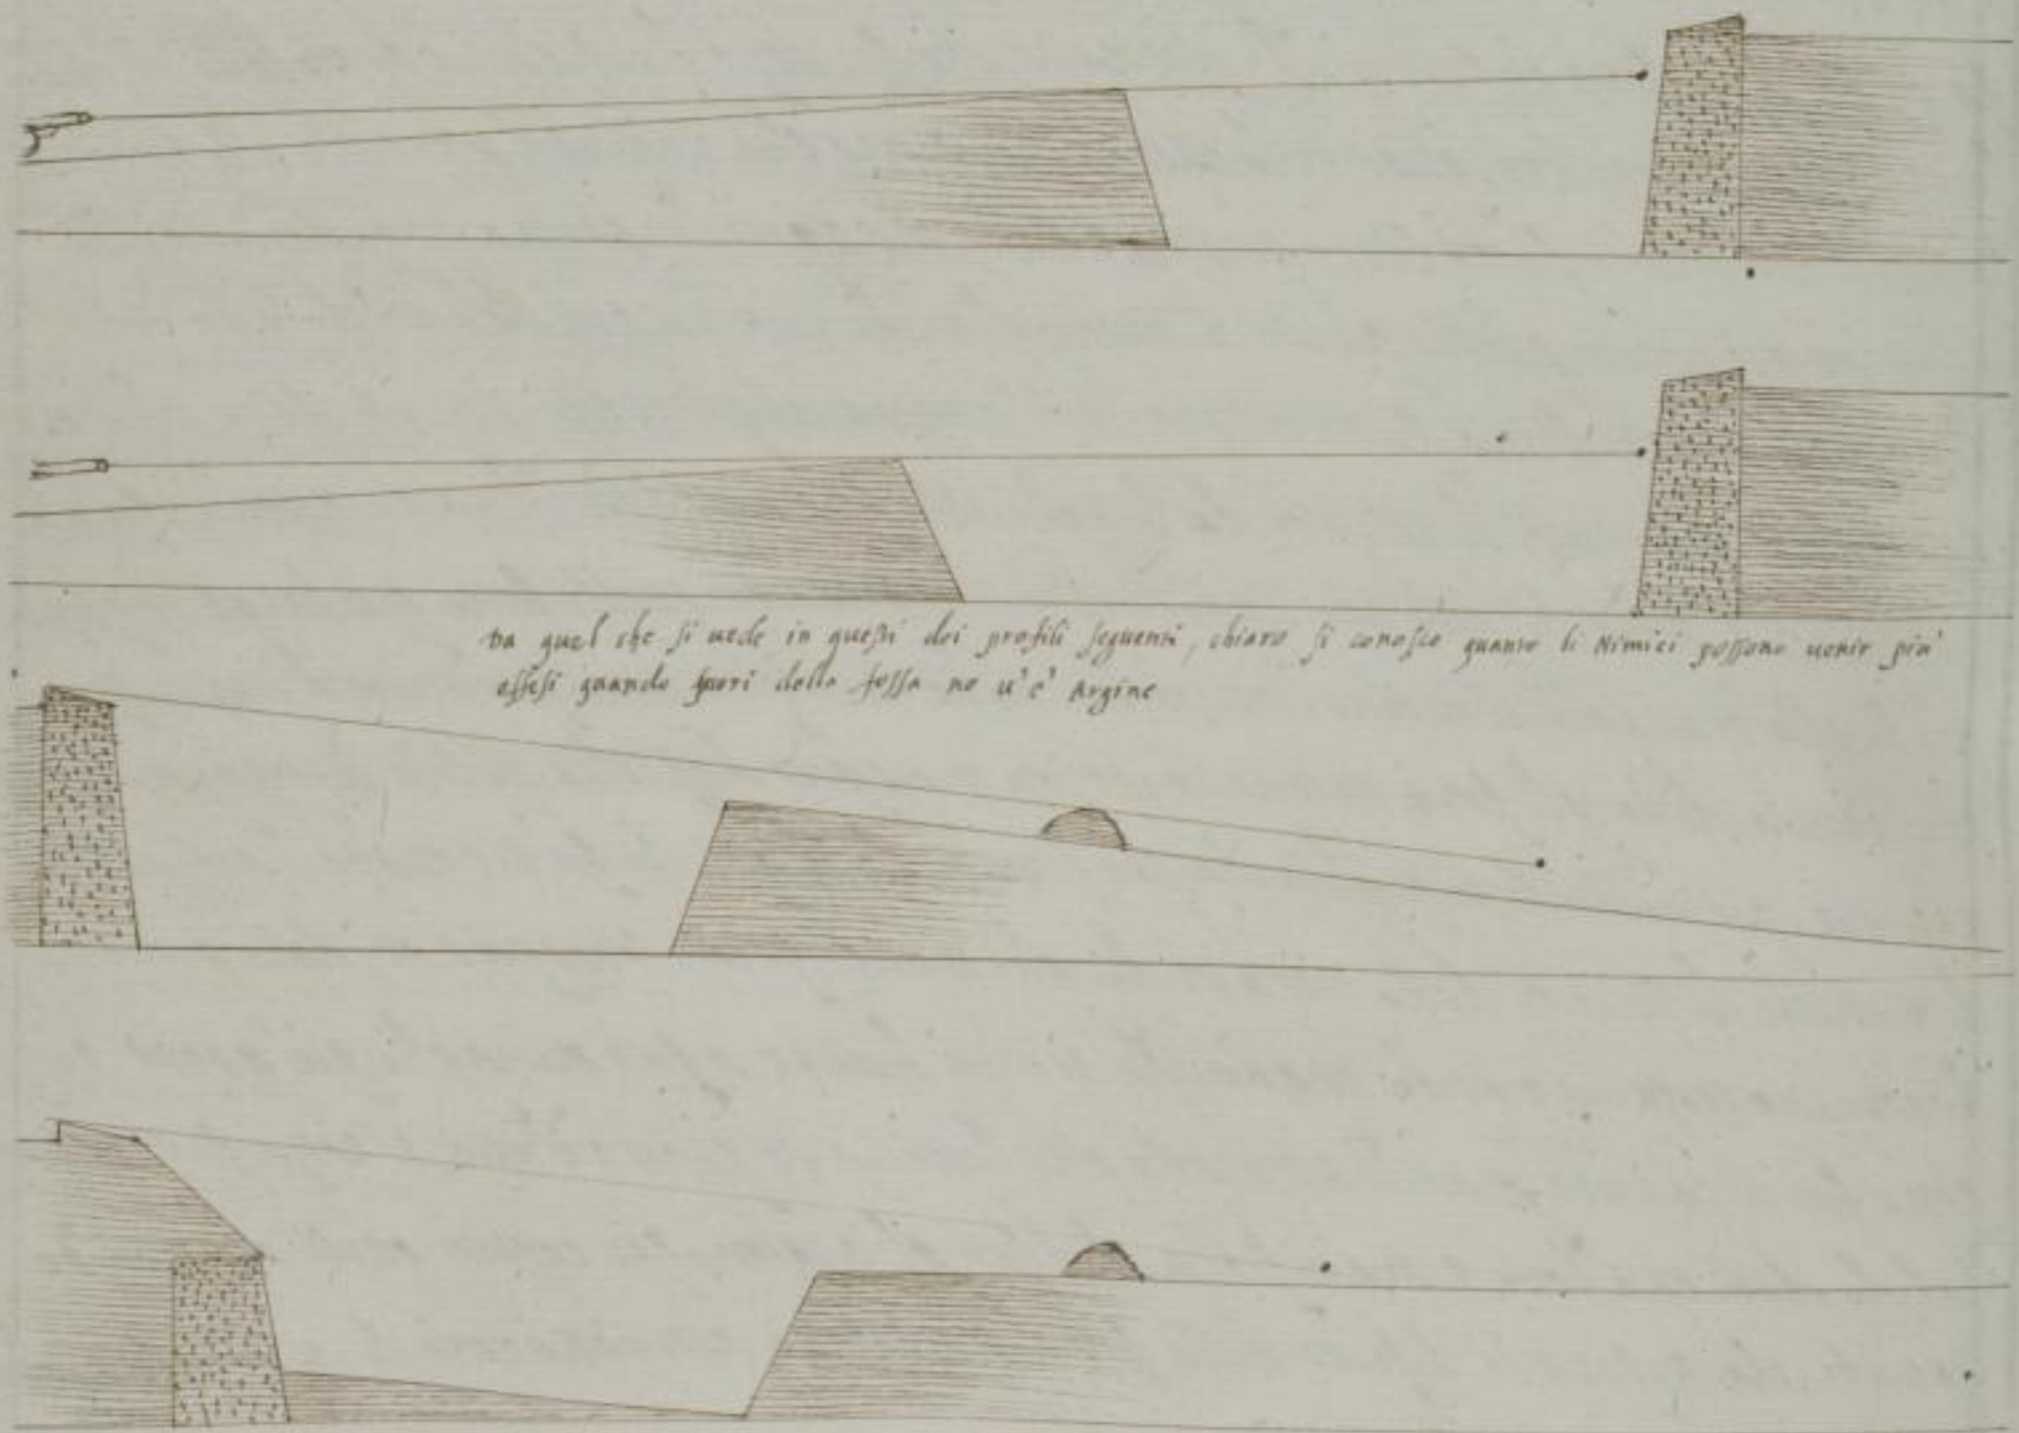 Da quel che si uede in questi doi profili seguenti, chiaro si conosce quanto li Nimici possono uenir piu'
offesi quando fuori della fossa no u'e' Argine